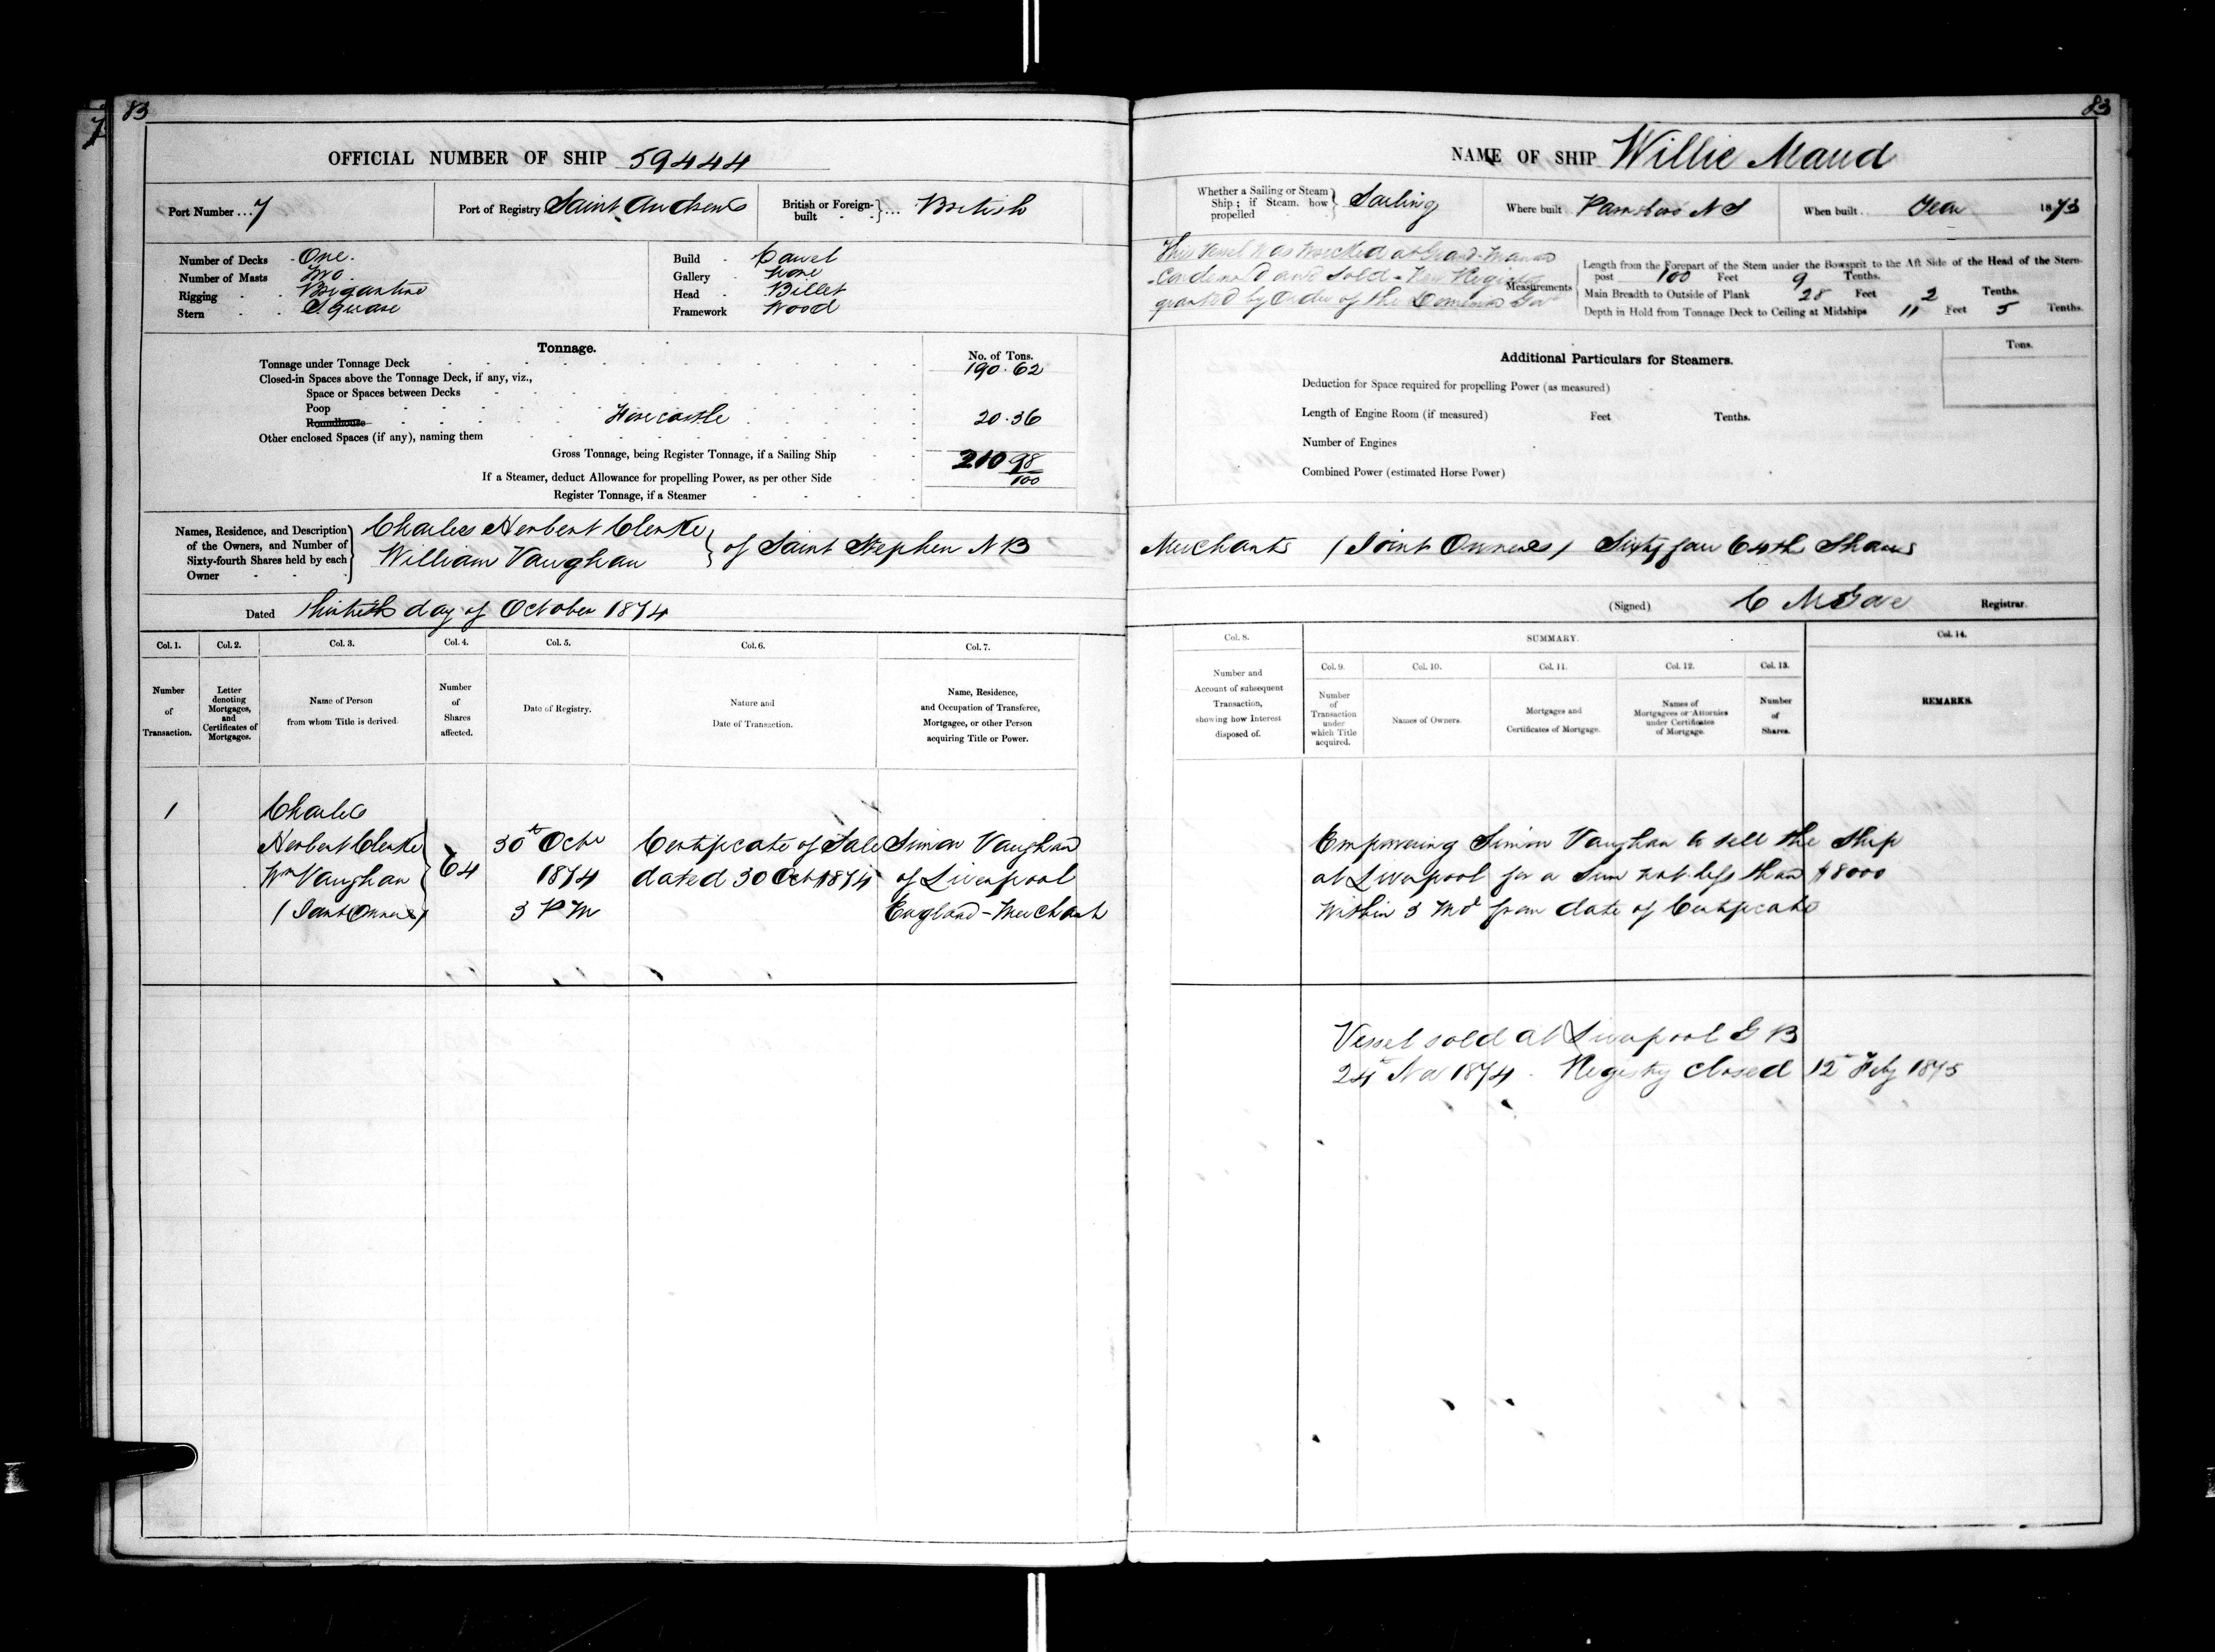 83
7
OFFICIAL NUMBER OF SHIP 59444
Port Number ... 7
Port of Registry Saint Andrews
British or Foreign-built ... British
Number of Decks One.
Number of Masts Two
Rigging Brigantine
Stern Square
Build Carvel
Gallery None
Head Billet
Framework Wood
Tonnage.
No. of Tons.
Tonnage under Tonnage Deck 190.62
Closed-in Spaces above the Tonnage Deck, if any, viz.,
Space or Spaces between Decks
Poop
Roundhouse Forecastle 20.36
Other enclosed Spaces (if any), naming them
Gross Tonnage, being Register Tonnage, if a Sailing Ship 210 98/100
If a Steamer, deduct Allowance for propelling Power, as per other Side
Register Tonnage, if a Steamer
Names, Residence, and Description of the Owners, and Number of Sixty-fourth Shares held by each Owner
Charles Herbert Clerke
William Vaughan
of Saint Stephen N B
Dated thirtieth day of October 1874
Col. 1. Col. 2. Col. 3. Col. 4. Col. 5. Col. 6. Col. 7.
Number of Transaction.
Letter denoting Mortgages, and Certificates of Mortgages.
Name of Person from whom Title is derived.
Number of Shares affected.
Date of Registry.
Nature and Date of Transaction.
Name, Residence, and Occupation of Transferee, Mortgagee, or other Person acquiring Title or Power.
1 Charles
Herbert Clerke 30th Octr Certificate of Sale Simon Vaughan
Wm Vaughan 64 1874 dated 30 Oct 1874 of Liverpool
(Joint Owners) 3 P M England - Merchant
83
NAME OF SHIP Willie Maud
Whether a Sailing or Steam Ship; if Steam, how propelled Sailing
Where built Parrsboro N S
When built Year 1873
This Vessel was wrecked at Grand Manan
Condemned and sold - New Register
granted by Order of the Dominion Govt
Measurements
Length from the Forepart of the Stem under the Bowsprit to the Aft Side of the Head of the Stern-
post 100 Feet 9 Tenths.
Main Breadth to Outside of Plank 28 Feet 2 Tenths.
Depth in Hold from Tonnage Deck to Ceiling at Midships 11 Feet 5 Tenths.
Additional Particulars for Steamers.
Tons.
Deduction for Space required for propelling Power (as measured)
Length of Engine Room (if measured) Feet Tenths.
Number of Engines
Combined Power (estimated Horse Power)
Merchants (Joint Owners) Sixty four 64th Shares
(Signed) C M Gove Registrar.
Col. 8. SUMMARY. Col. 14.
Col. 9. Col. 10. Col. 11. Col. 12. Col. 13.
Number and Account of subsequent Transaction, showing how Interest disposed of.
Number of Transaction under which Title acquired.
Names of Owners.
Mortgages and Certificates of Mortgage.
Names of Mortgagees or Attornies under Certificates of Mortgage.
Number of Shares.
REMARKS.
Empowering Simon Vaughan to sell the Ship
at Liverpool for a Sum not less than $8000
Within 3 Mos from date of Certificate
Vessel sold at Liverpool G B
24th Nov 1874. Registry closed 12th Feby 1875